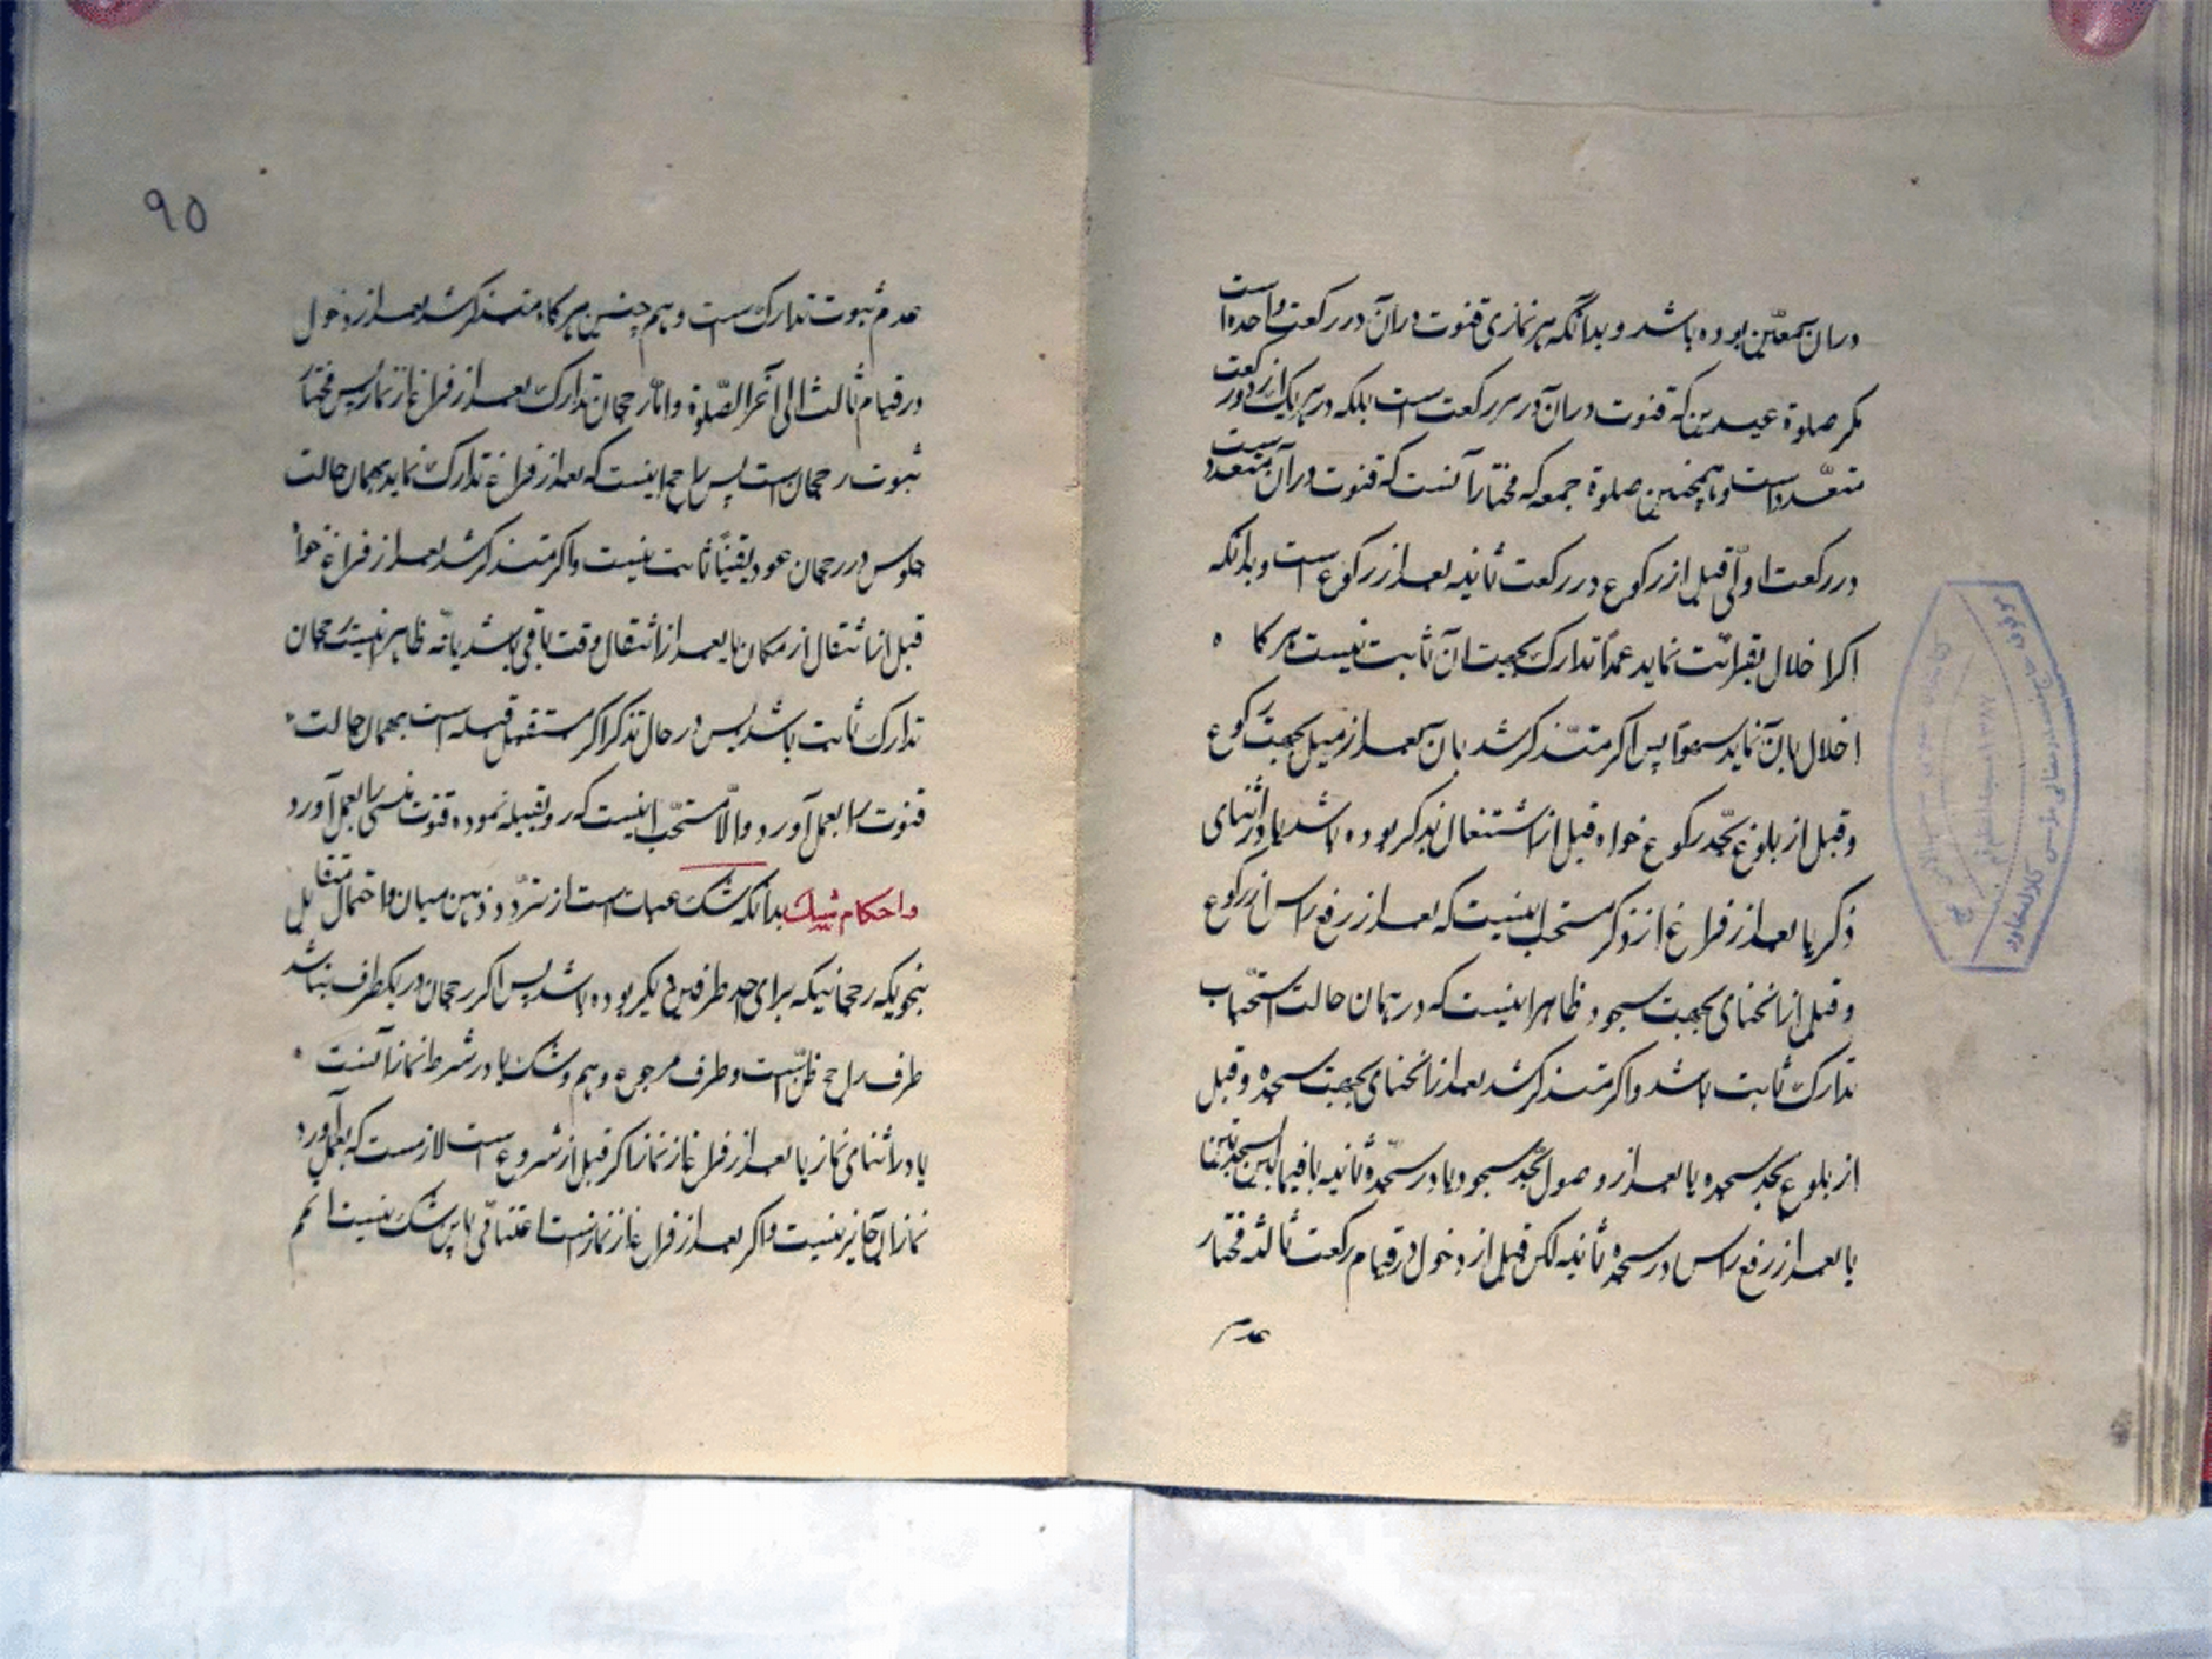 در آن معیّن بوده باشد و بدانکه هر نمازی قنوت در آن در رکعت واحده است
مکر صلوة عیدین که قنوت در آن در هر رکعت است بلکه در هر یک از دو رکعت
متعدّد است و همچنین صلوة جمعه که مختار آنست که قنوت در آن متعدد است
در رکعت اولی قبل از رکوع در رکعت ثانیه بعد از رکوع است و بدانکه
اکر اخلال بقرائت نماید عمداً تدارک بجهت آن ثابت نیست هرکاه
اخلال بآن نماید سهواً پس اکر متذکر شد بآن بعد از میل بجهت رکوع
و قبل از بلوغ بحّد رکوع خواه قبل از اشتغال بذکر بوده باشد یا در اثنای
ذکر یا بعد از فراغ از ذکر مستحب اینست که بعد از رفع راس از رکوع
و قبل از انحنای بجهت سجود ظاهر اینست که در همان حالت استحباب
تدارک ثابت باشد و اکر متذکر شد بعد از انحنای بجهت سجده و قبل
از بلوغ بحد سجده یا بعد از وصول بحّد سجود یا در سجدّه ثانیه یا فیما بین السجدتین
یا بعد از رفع راس در سجده ثانیه لکن قبل از دخول در قیام رکعت ثالثه مختار
عدم
٩٥
عدم ثبوت تدارک است و هم چنین هرکاه متذکر شد بعد از دخول
در قیام ثالث الی آخر الصّلوة و امّا رجحان تدارک بعد از فراغ از نماز پس مختار
ثبوت رجحان است پس راجح اینست که بعد از فراغ تدارک نماید بهمان حالت
جلوس در رجحان عود یقیناً ثابت نیست و اکر متذکر شد بعد از فراغ خواه
قبل از انتقال از مکان یا بعد از انتقال وقت باقی باشد یا نه ظاهر اینست رجحان
تدارک ثابت باشد پس در حال تذکر اکر مستقبل قبله است بهمان حالت
قنوت را بعمل آورد و الّا مستحّب اینست که رو بقبله نموده قنوت منسی را بعمل آورد
و احکام شک بدانکه شک عبارت است از تردّد ذهن میان دو احتمال متقابل
بنحویکه رجحانیکه برای احد طرفین دیکر بوده باشد پس اکر رجحان در یکطرف بنا شد
طرف راجح ظنّ است و طرف مرجوح وهم و شک یا در شرط نماز آنست
یا در اثنای نماز یا بعد از فراغ از نماز اکر قبل از شروع است لازمست که بعمل آورد
نماز با آن جایز نیست و اکر بعد از فراغ از نماز است اعتنائی باین شک نیست اکر هم